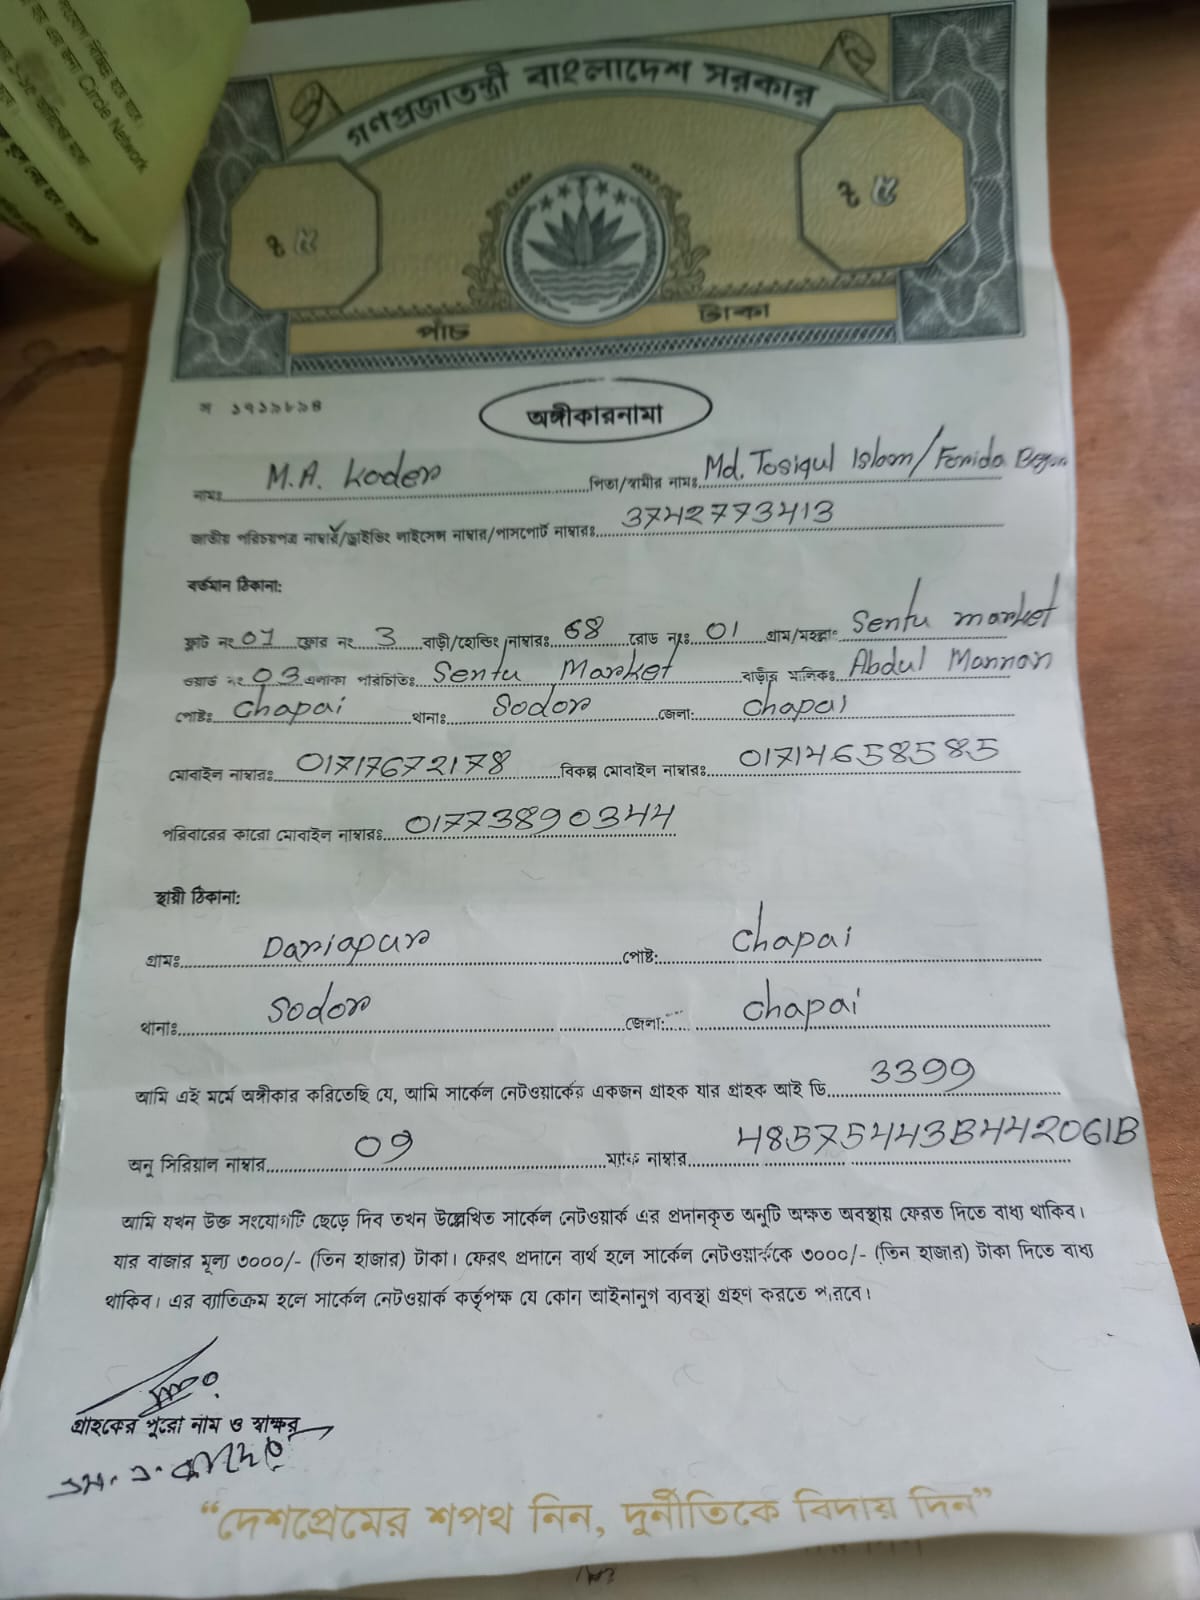 গণপ্রজাতন্ত্রী বাংলাদেশ সরকার
৳ ৫ ৳ ৫
পাঁচ টাকা
অঙ্গীকারনামা
নামঃ M.A. Kader পিতা/স্বামীর নামঃ Md. Tosiqul Islam/Farida Begum
জাতীয় পরিচয়পত্র নাম্বার/ড্রাইভিং লাইসেন্স নাম্বার/পাসপোর্ট নাম্বারঃ 3742773413
বর্তমান ঠিকানা:
ফ্লাট নং 01 ফ্লোর নং 3 বাড়ী/হোল্ডিং নাম্বারঃ 68 রোড নংঃ 01 গ্রাম/মহল্লাঃ Sentu market
ওয়ার্ড নং 03 এলাকা পরিচিতিঃ Sentu Market বাড়ীর মালিকঃ Abdul Mannan
পোষ্টঃ Chapai থানাঃ Sodor জেলা: Chapai
মোবাইল নাম্বারঃ 01717672178 বিকল্প মোবাইল নাম্বারঃ 01714658585
পরিবারের কারো মোবাইল নাম্বারঃ 01773890344
স্থায়ী ঠিকানা:
গ্রামঃ Dariapur পোষ্ট: Chapai
থানাঃ Sodor জেলা: Chapai
আমি এই মর্মে অঙ্গীকার করিতেছি যে, আমি সার্কেল নেটওয়ার্কের একজন গ্রাহক যার গ্রাহক আই ডি 3399
অনু সিরিয়াল নাম্বার 09 ম্যাক নাম্বার 48575443B442061B
আমি যখন উক্ত সংযোগটি ছেড়ে দিব তখন উল্লেখিত সার্কেল নেটওয়ার্ক এর প্রদানকৃত অনুটি অক্ষত অবস্থায় ফেরত দিতে বাধ্য থাকিব।
যার বাজার মূল্য ৩০০০/- (তিন হাজার) টাকা। ফেরৎ প্রদানে ব্যর্থ হলে সার্কেল নেটওয়ার্ককে ৩০০০/- (তিন হাজার) টাকা দিতে বাধ্য
থাকিব। এর ব্যাতিক্রম হলে সার্কেল নেটওয়ার্ক কর্তৃপক্ষ যে কোন আইনানুগ ব্যবস্থা গ্রহণ করতে পারবে।
গ্রাহকের পুরো নাম ও স্বাক্ষর
এম. এ. কাদের
“দেশপ্রেমের শপথ নিন, দুর্নীতিকে বিদায় দিন”
Circle Network